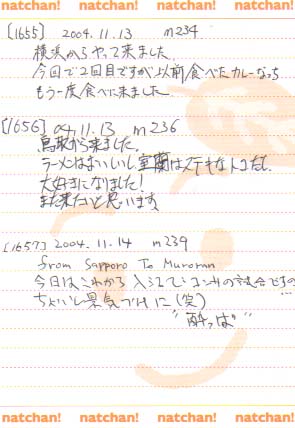 natchan! natchan! natchan! natchan!
[1655] 2004.11.13 m234
横浜からやって来ました
今回で2回目ですが以前食べたカレーなっち
もう一度食べに来ました
[1656] 04 11.13 m236
鳥取から来ました。
ラーメンはおいしいし室蘭はステキなトコだし、
大好きになりました!
また来たいと思います。
[1657] 2004.11.14 m239
from Sapporo To Muroran
今日はこれから 入江で の試合ですの
ちょいと景気づけに(笑)
"酔っぱ"
natchan! natchan! natchan! natchan!